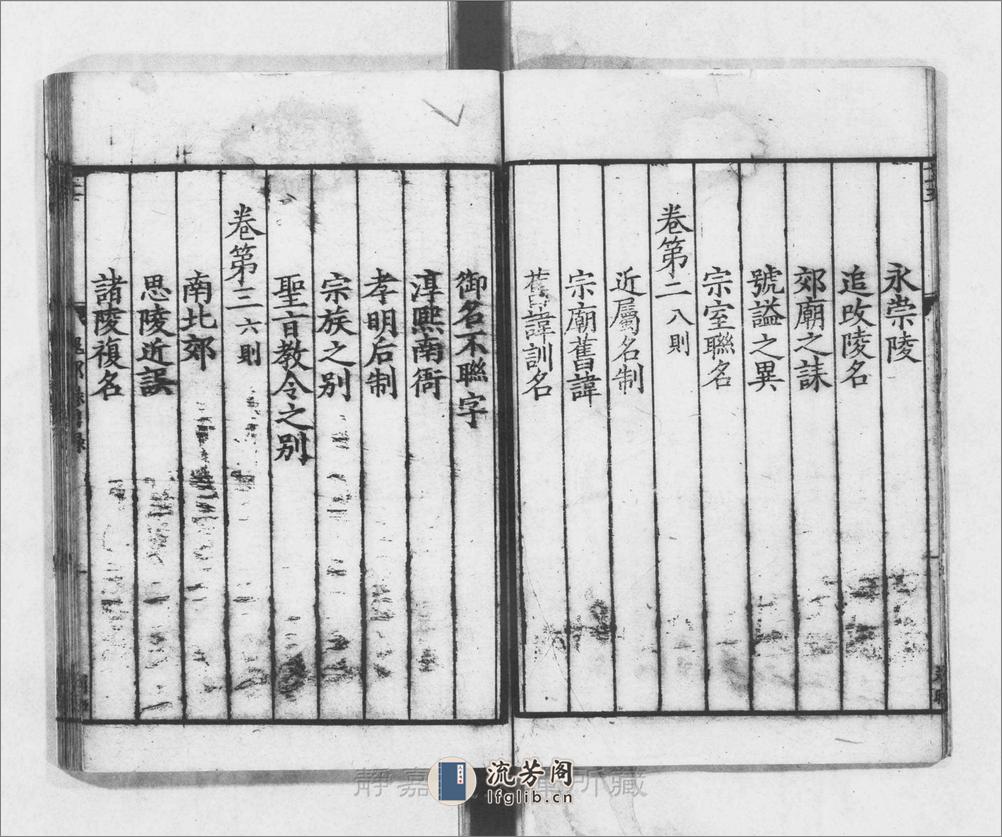 永崇陵
追改陵名
郊廟之誄
號謚之異
宗室聯名
卷第二 八則
近屬名制
宗廟舊諱
舊諱訓名
御名不聯字
淳熙南衙
孝明后制
宗族之别
聖旨教令之别
卷第三 六則
南北郊
思陵近誤
諸陵複名
流芳阁
lfglib.cn